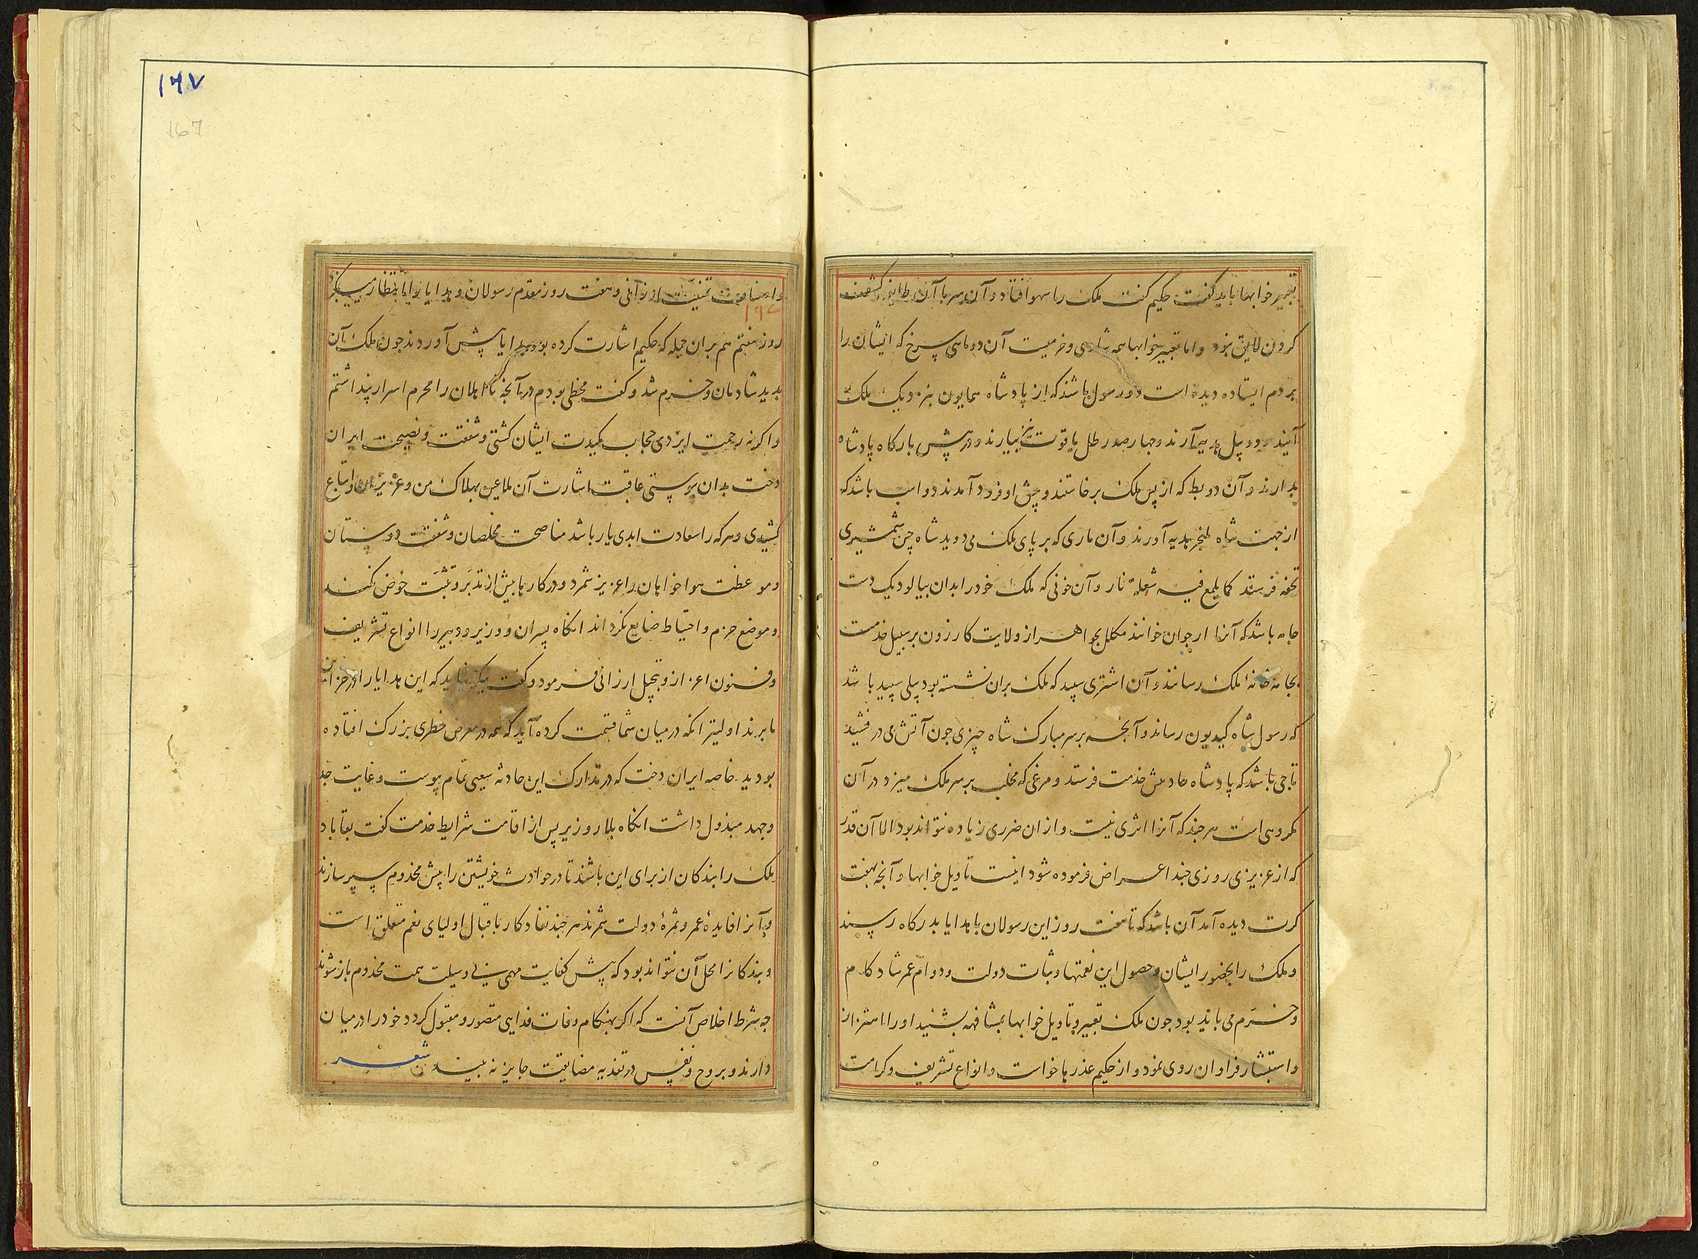 تعبیر خوابها باید گفت حکیم گفت ملک را سهو افتاد و آن سر با آن طایفه کشف
کردن لایق نبود واما تعبیر خوابها همه شادی و خرمیست آن دو ماهی سرخ که ایشان را
بر دم ایستاده دیده است دو رسول باشد که از پادشاه همایون بنزدیک ملک
آیند و دو پیل هدیه آرند و چهار صد رطل یاقوت بیارند و در پیش بارگاه پادشاه
بدارند و آن دو بط که از پس ملک برخاستند و پیش او فرود آمدند دو اسب باشد که
از جهت شاه بلنجر هدیه آورند و آن ماری که بر پای ملک می دوید شاه چین شمشیری
تحفه فرستد کما یلمع فیه شعلة نار و آن خونی که ملک خود را بدان بیالود یک دست
جامه باشد که آنرا ارجوان خوانند مکلل بجواهر از ولایت کارزون بر سبیل خدمت
بجامه خانه ملک رسانند و آن اشتری سپید که ملک بران نشسته بود پیلی سپید باشد
که رسول شاه کیدیون رساند و آنچه بر سر مبارک شاه چیزی جون آتش می درفشید
تاجی باشد که پادشاه جاد بیش خدمت فرستد و مرغی که مخلب بر سر ملک میزد در آن
مکروهی است هرچند که آنرا اثری نیست و از ان ضرری زیاده نتواند بود الا آن قدر
که از عزیزی روزی چند اعراض فرموده شود اینست تاویل خوابها و آنچه بهفت
کرت دیده آمد آن باشد که تا هفت روز این رسولان با هدایا بدرگاه رسند
و ملک را بحضور ایشان و حصول این نعمتها و ثبات دولت و دوام عمر شاد کام
و خرم می باید بود جون ملک تعبیر و تاویل خوابها بمشافهه بشنید او را اهتزاز
و استبشار فراوان روی نمود و از حکیم عذرها خواست و انواع تشریف و کرامت
۱۶۷
167
و اضافت تمنیت ارزانی و هفت روز مقدم رسولان و هدایا را انتظار میکرد
۱۶۷
روز هفتم هم بران جمله که حکیم اشارت کرده بود هدایا پیش آوردند جون ملک آن
بدید شادمان و خرم شد و گفت مخطی بودم در آنچه نااهلان را محرم اسرار پنداشتم
و اگر نه رحمت ایزدی حجاب مکیدت ایشان گشتی و شفقت و نصیحت ایران
دخت بدان پیوستی عاقبت اشارت آن ملاعین بهلاک من و عزیزان و اتباع
کشیدی و هر که را سعادت ابدی یار باشد مناصحت مخلصان و شفقت دوستان
و موعظت هوا خواهان را عزیز شمرد و در کارها بیش از تدبر و تثبت خوض نکند
و موضع حزم و احتیاط ضایع نگرداند انگاه پسران و وزیر و دبیر را انواع تشریف
و فنون اعزاز و تبجیل ارزانی فرمود و گفت نیک نیاید که این هدایا را در خزاین
ما برند اولیتر انکه در میان شما قسمت کرده آید که همه در معرض خطری بزرگ افتاده
بودید خاصه ایران دخت که در تدارک این حادثه سعیی تمام پیوست و غایت جد
و جهد مبذول داشت انگاه بلار وزیر پس از اقامت شرایط خدمت گفت بقا باد
ملک را بندگان از برای این باشند تا در حوادث خویشتن را پیش مخدوم سپر سازند
و آنرا فایده عمر و ثمره دولت شمرند هر چند نفاد کار باقبال اولیای نعم متعلق است
و بندگانرا محل آن نتواند بود که پیش کفایت مهمی بی وسیلت همت مخدوم باز شوند
چه شرط اخلاص آنست که اگر بهنگام وفات فدایی متصور و مقبول گردد خود را در میان
دارند و بروح و نفس در تفدیه مضایقت جایز نه بینند شعر